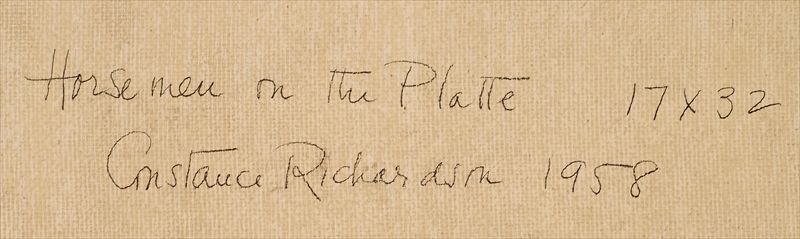 Horsemen on the Platte 17X32
Constance Richardson 1958